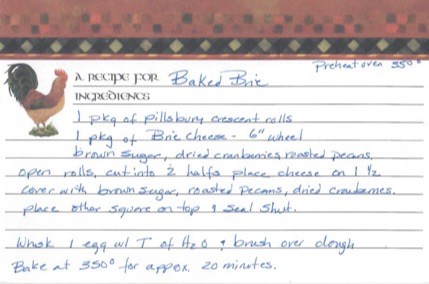 Preheat oven 350°
A RECIPE FOR Baked Brie
INGREDIENTS
1 pkg of pillsbury crescent rolls
1 pkg of Brie Cheese - 6" wheel
brown sugar, dried cranberries roasted pecans.
open rolls, cut into 2 halfs place cheese on 1 1/2
cover with brown sugar, roasted pecans, dried cranberries.
place other square on top & seal shut.
Whisk 1 egg w/ T of H2O & brush over dough
Bake at 350° for approx. 20 minutes.